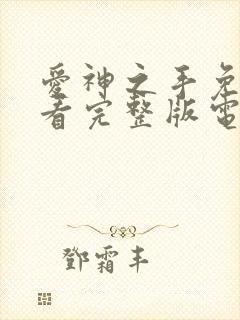 愛神之手免
看完整版電
鄧霜丰